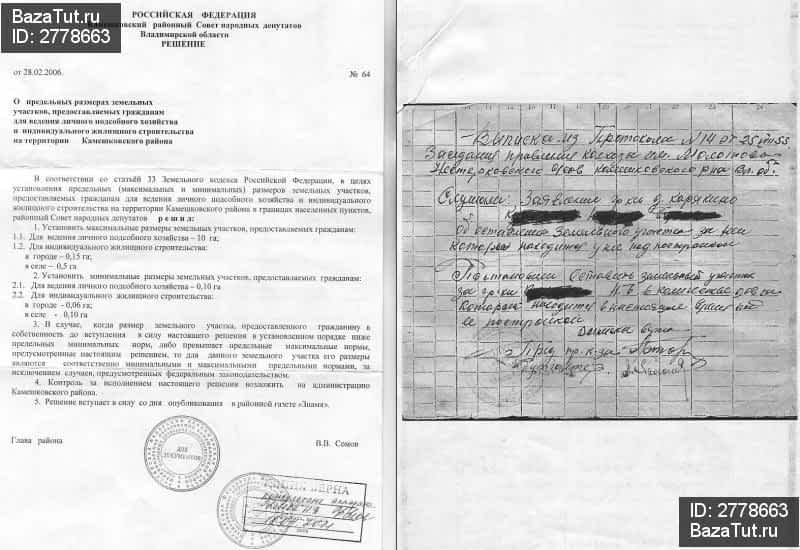 BazaTut.ru
ID: 2778663
РОССИЙСКАЯ ФЕДЕРАЦИЯ
районный Совет народных депутатов
Владимирской области
РЕШЕНИЕ
от 28.02.2006.
№ 64
О предельных размерах земельных
участков, предоставляемых гражданам
для ведения личного подсобного хозяйства
и индивидуального жилищного строительства
на территории Камешковского района
В соответствии со статьёй 33 Земельного кодекса Российской Федерации, в целях
установления предельных (максимальных и минимальных) размеров земельных участков,
предоставляемых гражданам для ведения личного подсобного хозяйства и индивидуального
жилищного строительства на территории Камешковского района в границах населенных пунктов,
районный Совет народных депутатов р е ш и л:
1. Установить максимальные размеры земельных участков, предоставляемых гражданам:
1.1. Для ведения личного подсобного хозяйства – 10 га;
1.2. Для индивидуального жилищного строительства:
в городе – 0,15 га;
в селе – 0,5 га
2. Установить минимальные размеры земельных участков, предоставляемых гражданам:
2.1. Для ведения личного подсобного хозяйства – 0,10 га
2.2. Для индивидуального жилищного строительства:
в городе - 0,06 га;
в селе - 0,10 га
3. В случае, когда размер земельного участка, предоставленного гражданину в
собственность до вступления в силу настоящего решения в установленном порядке ниже
предельных минимальных норм, либо превышает предельные максимальные нормы,
предусмотренные настоящим решением, то для данного земельного участка его размеры
являются соответственно минимальными и максимальными предельными нормами, за
исключением случаев, предусмотренных федеральным законодательством.
4. Контроль за исполнением настоящего решения возложить на администрацию
Камешковского района.
5. Решение вступает в силу со дня опубликования в районной газете «Знамя».
Глава района
В.В. Сомов
ДЛЯ
ДОКУМЕНТОВ
КОПИЯ ВЕРНА
Выписка из Протокола N 14 от 25
Заседания правления колхоза им. Молотова
Слушали: Заявление гр-ки д. Карякино
Об оставлении Земельного участка за ней
который находится у нее под постройкой
Постановили Оставить земельный участок
за гр-кой
ее постройкой
ID: 2778663
BazaTut.ru